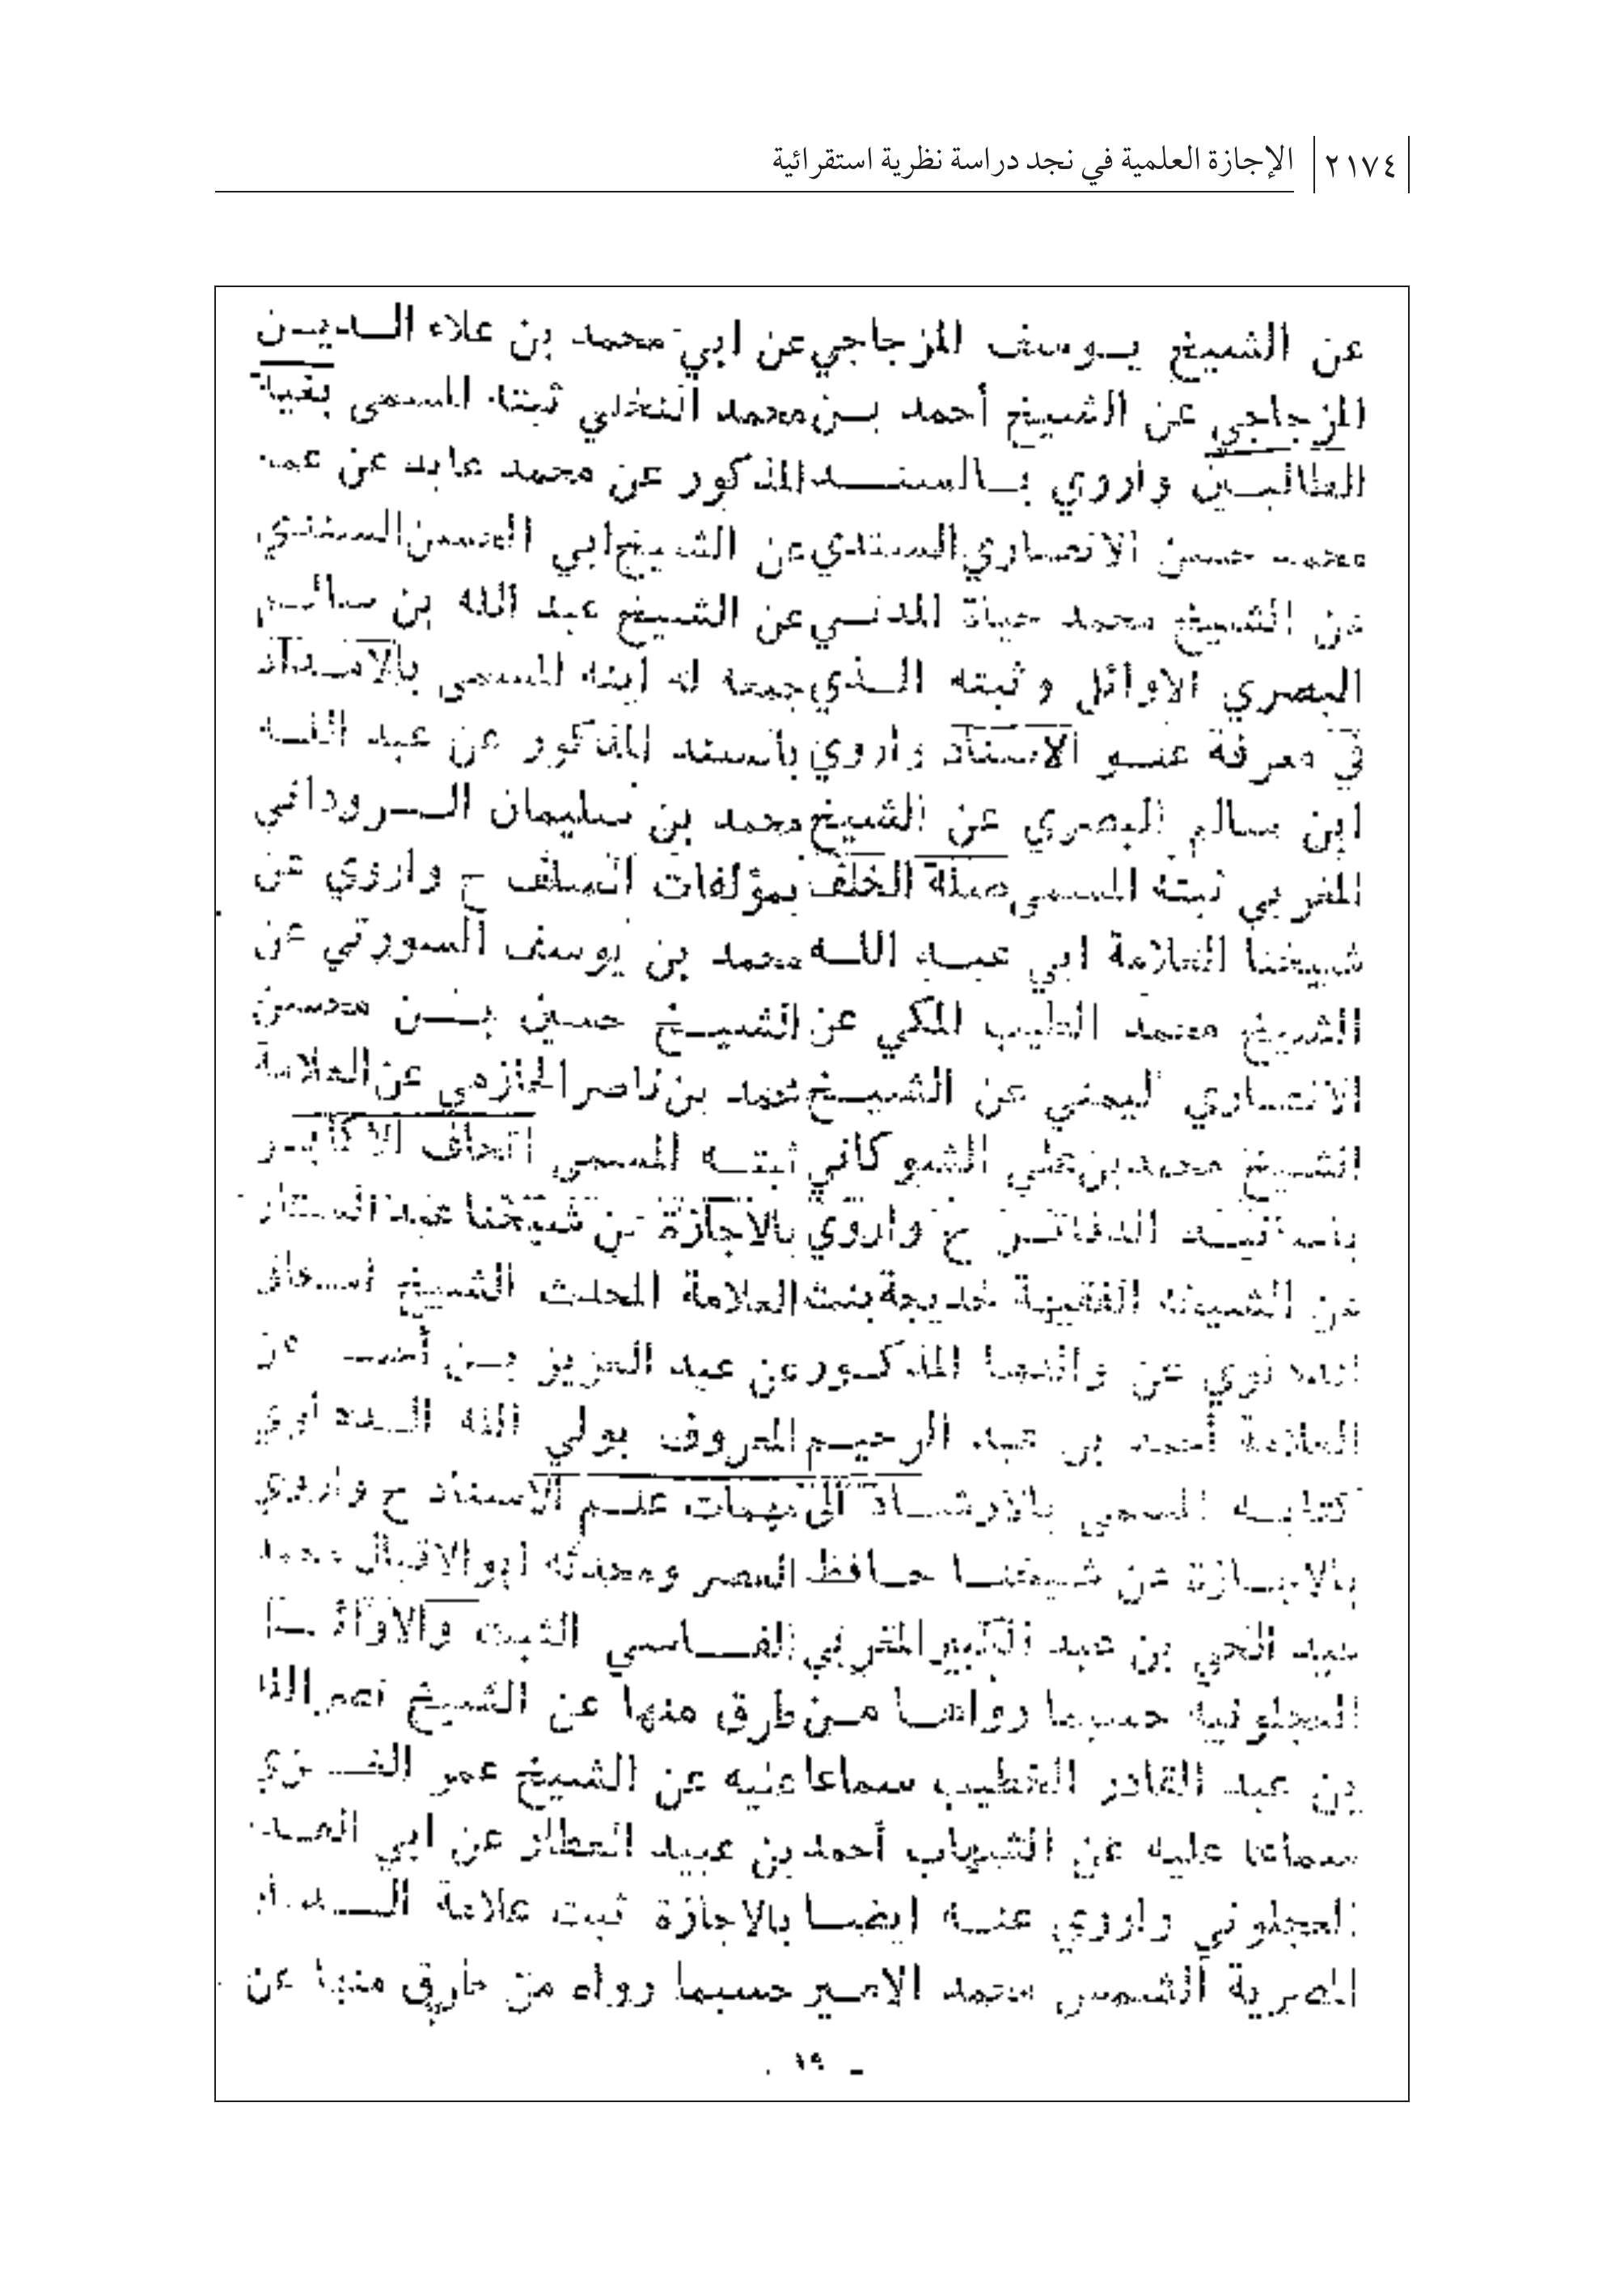 ٢١٧٤ الإجازة العلمية في نجد دراسة نظرية استقرائية
عن الشيخ يوسف المزجاجي عن ابي محمد بن علاء الدين
المزجاجي عن الشيخ أحمد بن محمد النخلي ثبته المسمى بغية
الطالبين واروي بالسند المذكور عن محمد عابد عن عمه
محمد حسن الانصاري السندي عن الشيخ ابي الحسن السندي
عن الشيخ محمد حياة المدني عن الشيخ عبد الله بن سالم
البصري الاوائل وثبته الذي جمعه له ابنه المسمى بالامداد
في معرفة علو الاسناد واروي بالسند المذكور عن عبد الله
ابن سالم البصري عن الشيخ محمد بن سليمان الروداني
المغربي ثبته المسمى صلة الخلف بمؤلفات السلف ح واروي عن
شيخنا العلامة ابي عبد الله محمد بن يوسف السورتي عن
الشيخ محمد الطيب المكي عن الشيخ حسين بن محسن
الانصاري اليمني عن الشيخ محمد بن ناصر الحازمي عن العلامة
الشيخ محمد بن علي الشوكاني ثبته المسمى اتحاف الاكابر
باسانيد الدفاتر ح واروي بالاجازة عن شيخنا عبد الستار
عن الشيخة الفقيهة خديجة بنت العلامة المحدث الشيخ اسحاق
عن والدها المذكور عن عبد العزيز بن أحمد عن
العلامة أحمد بن عبد الرحيم المعروف بولي الله الدهلوي
كتابه المسمى بالارشاد الى مهمات علم الاسناد ح واروي
بالاجازة عن شيخنا حافظ العصر ومحدثه ابو الاقبال محمد
عبد الحي بن عبد الكبير المغربي الفاسي الثبت والاوائل
العجلونية حسبما رواها من طرق منها عن الشيخ نصر الله
بن عبد القادر الخطيب سماعا عليه عن الشيخ عمر الغزي
سماعا عليه عن الشهاب أحمد بن عبيد العطار عن ابي الفدا
العجلوني واروي عنه ايضا بالاجازة ثبت علامة الديار
المصرية الشمس محمد الامير حسبما رواه من طرق منها عن
- ١٩ -